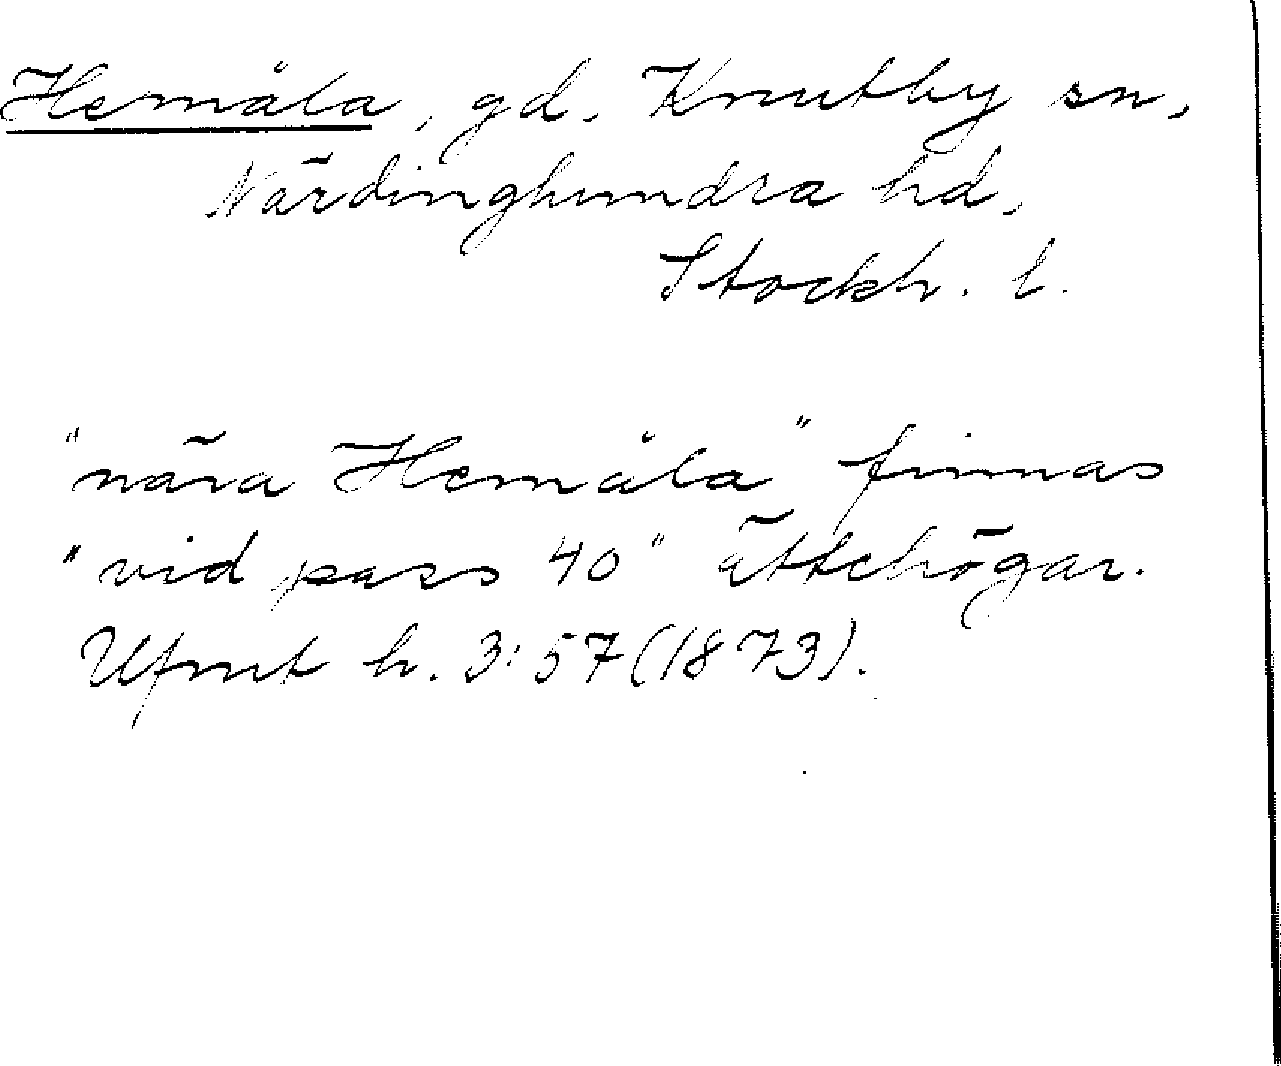 Hemåla, gd. Knutby sn,
Närdinghundra hd,
Stockh. l.
"nära Hemåla" finnas
"vid pass 40" ättehögar.
Ufmt h. 3:57 (1873).